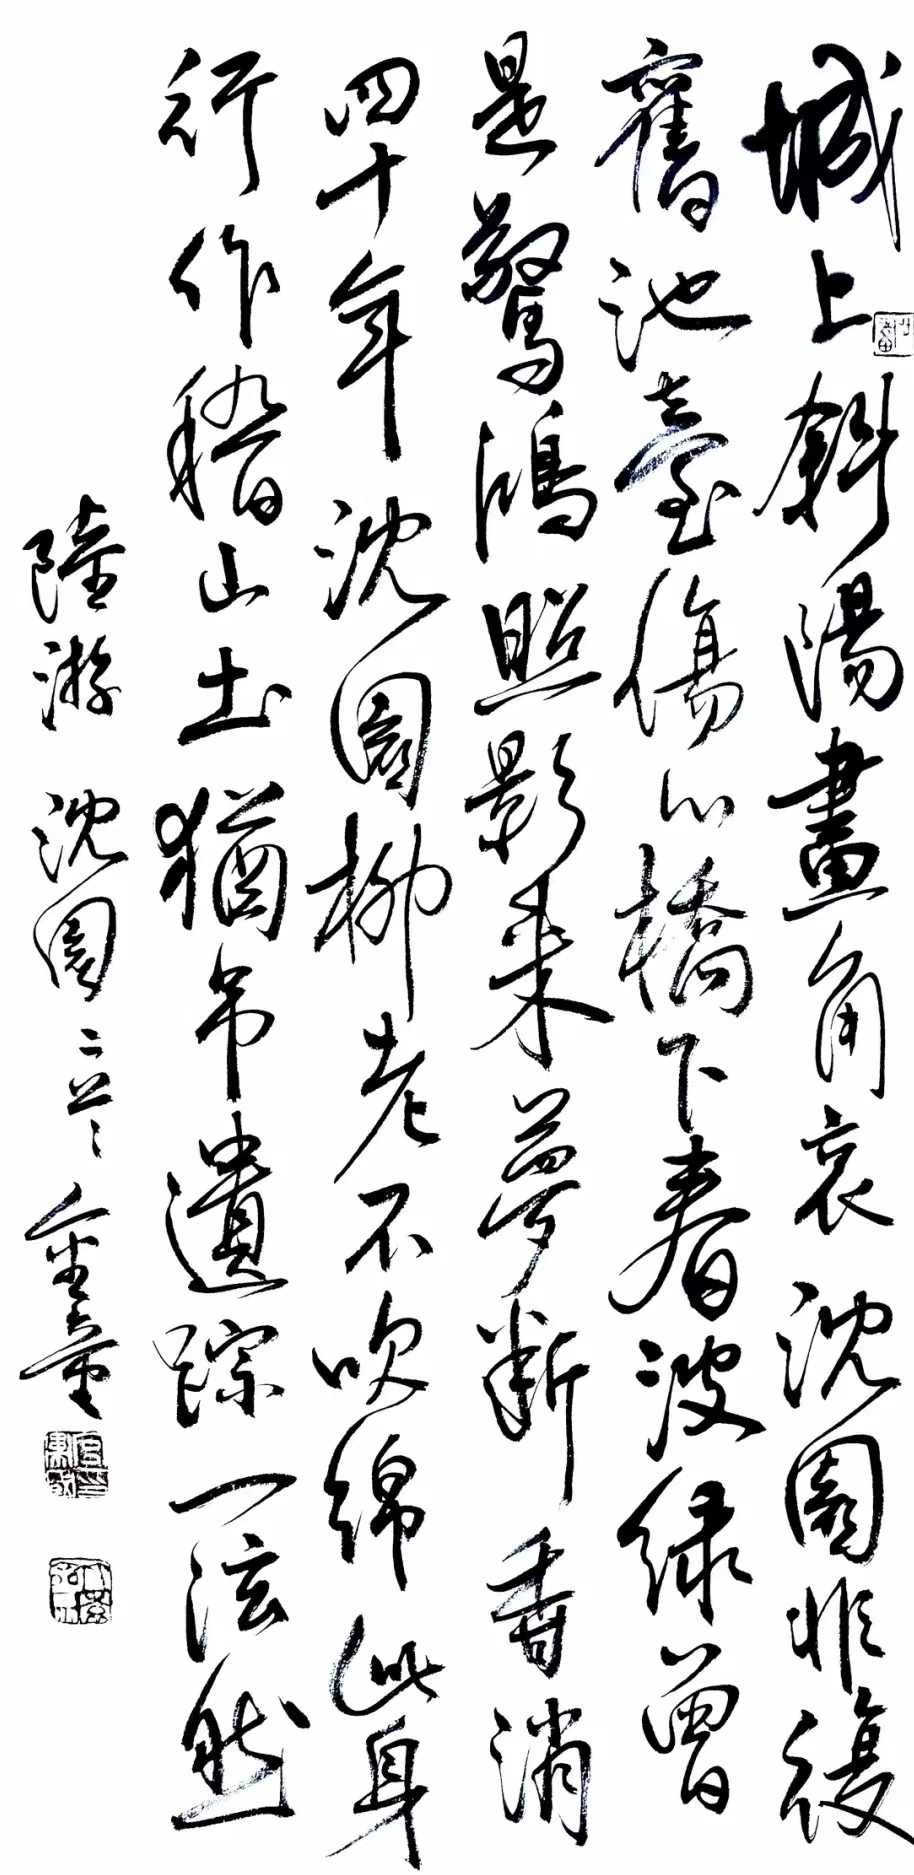 城上斜陽畫角哀沈園非復
舊池臺傷心橋下春波綠曾
是驚鴻照影来夢断香消
四十年沈園柳老不吹綿此身
行作稽山土猶吊遺踪一泫然
陸游 沈園二首 金童